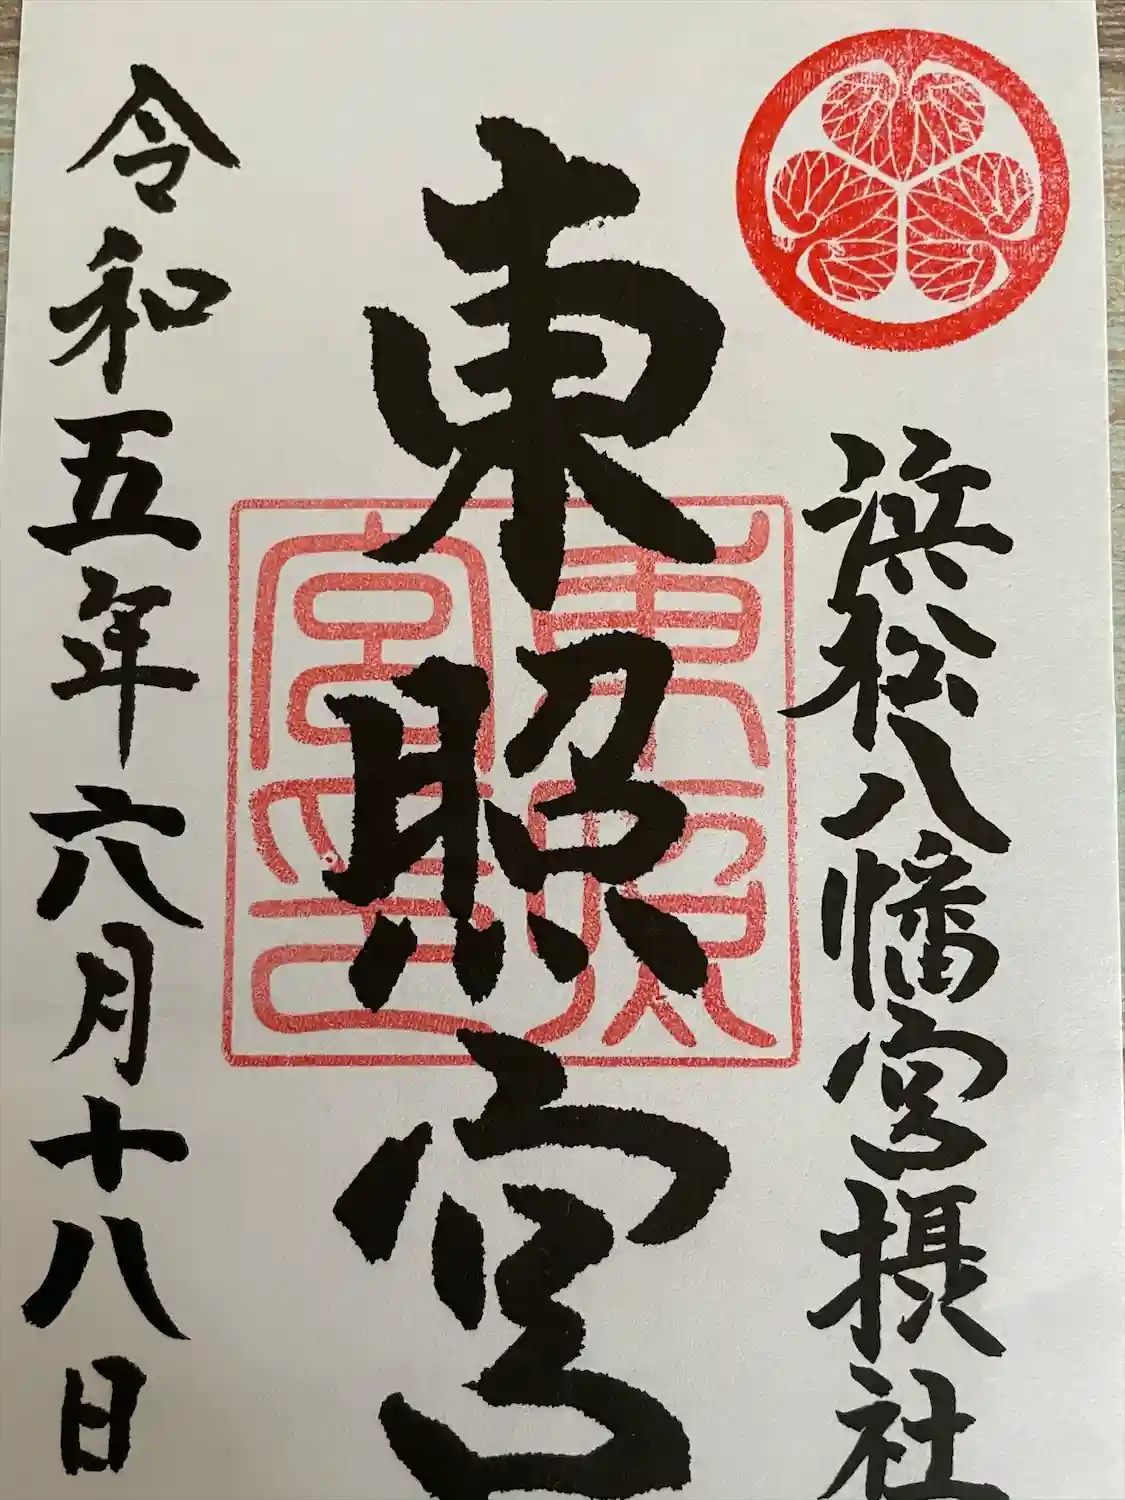 浜松八幡宮摂社
東照宮
東照宮之印
令和五年六月十八日